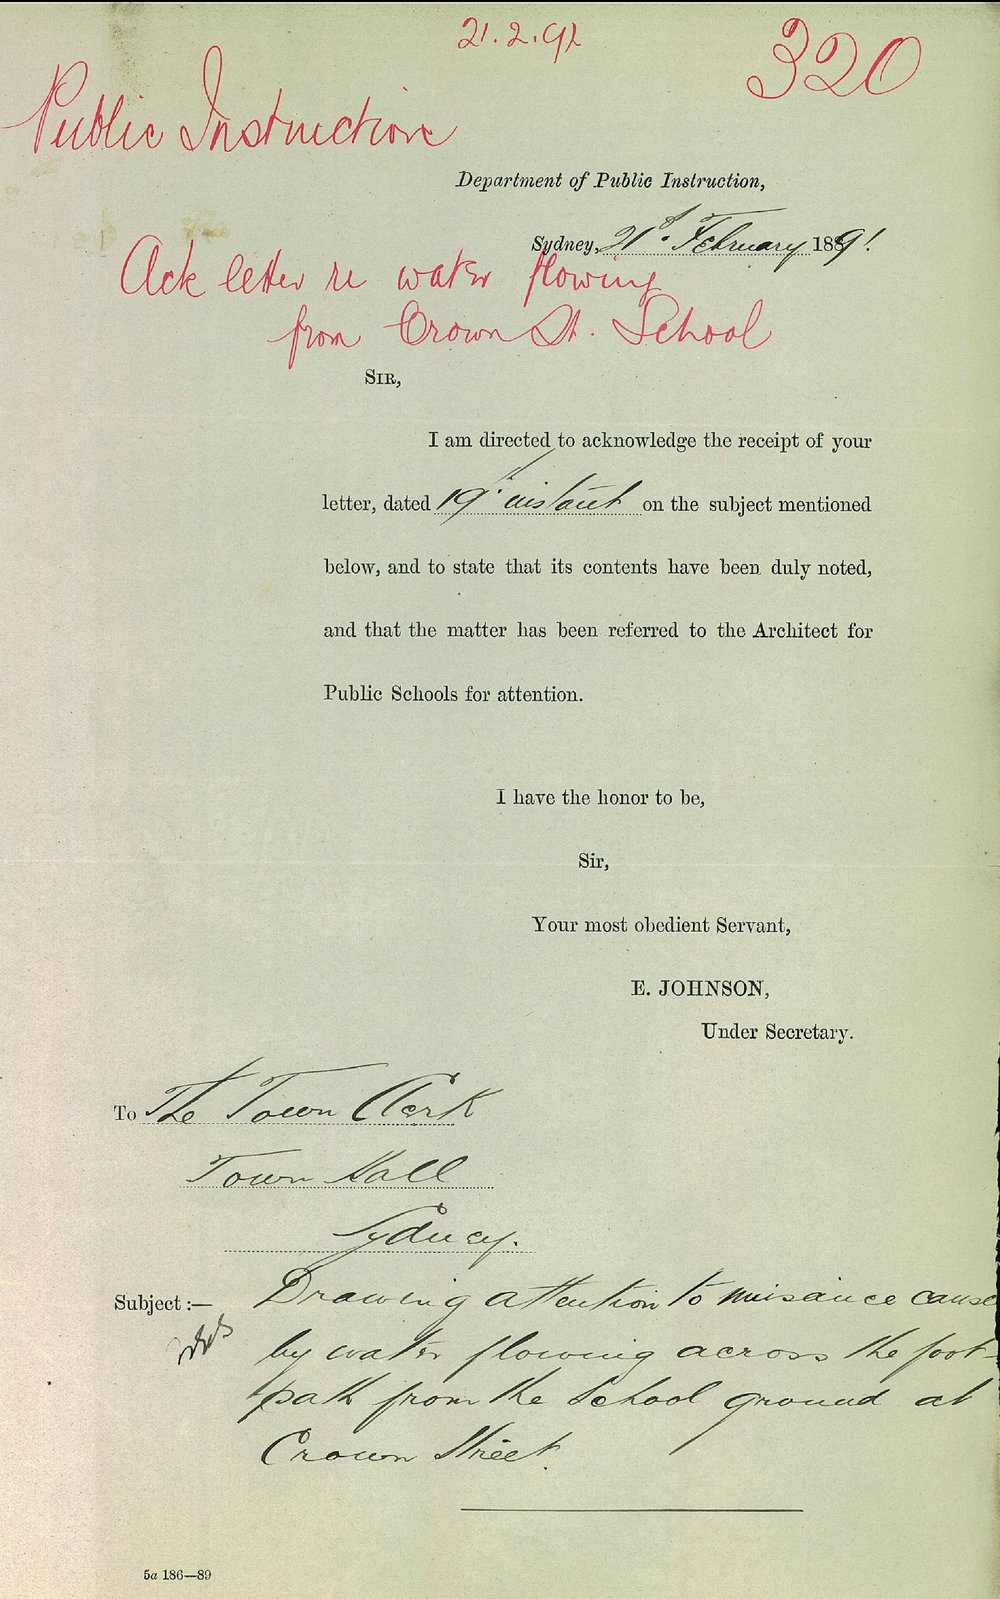 21.2.92
320
Public Instruction
Department of Public Instruction,
Sydney, 21st February 1891.
Ack letter re water flowing
from Crown St. School
SIR,
I am directed to acknowledge the receipt of your
letter, dated 19th instant on the subject mentioned
below, and to state that its contents have been duly noted,
and that the matter has been referred to the Architect for
Public Schools for attention.
I have the honor to be,
Sir,
Your most obedient Servant,
E. JOHNSON,
Under Secretary.
To The Town Clerk
Town Hall
Sydney.
Subject :— Drawing attention to nuisance cause
by water flowing across the foot-
path from the School ground at
Crown Street.
5a 186—89